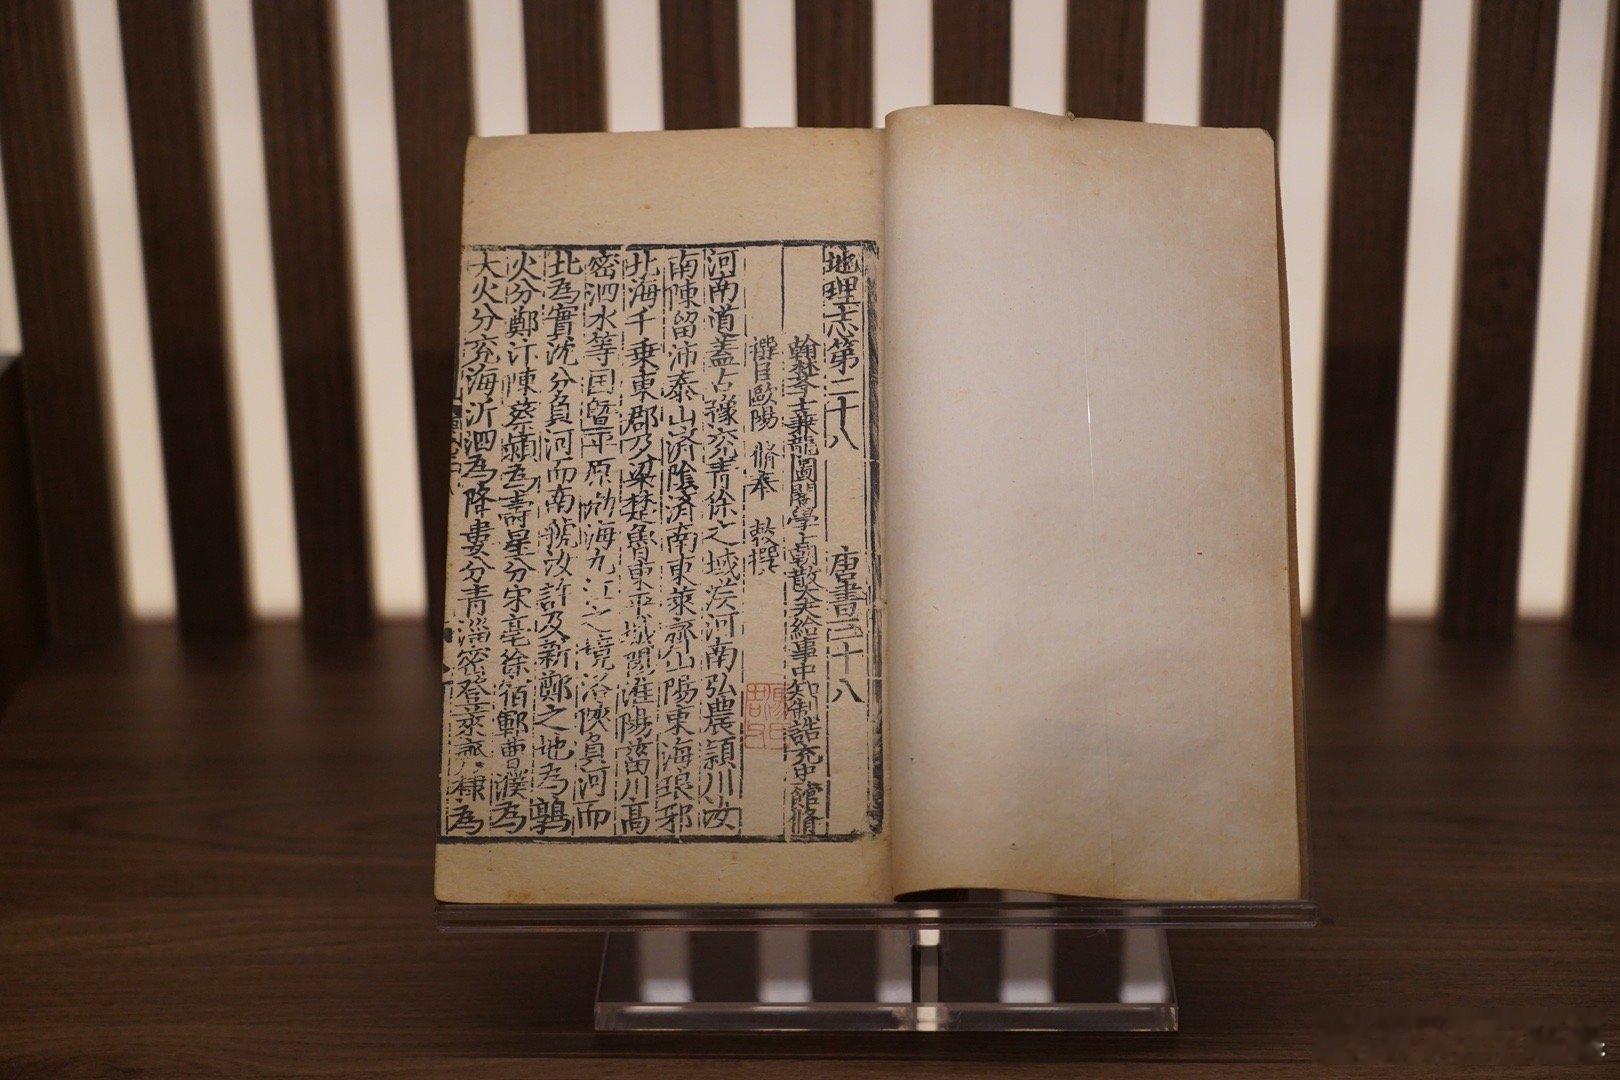 地理志第二十八 唐書三十八
翰林學士兼龍圖閣學士朝散大夫給事中知制誥充史館脩
撰臣歐陽 脩奉 敕撰
河南道蓋古豫兖青徐之域漢河南弘農潁川汝
南陳留沛泰山濟隂濟南東萊齊山陽東海琅邪
北海千乗東郡及梁楚魯東平城陽淮陽菑川髙
密泗水等国曁平原渤海九江之境洛陝負河而
北為實沈分負河而南虢汝許及新鄭之地為鶉
火分鄭汴陳蔡潁為壽星分宋亳徐宿鄆曹濮為
大火分兖海沂泗為降婁分青淄密登萊 棣為